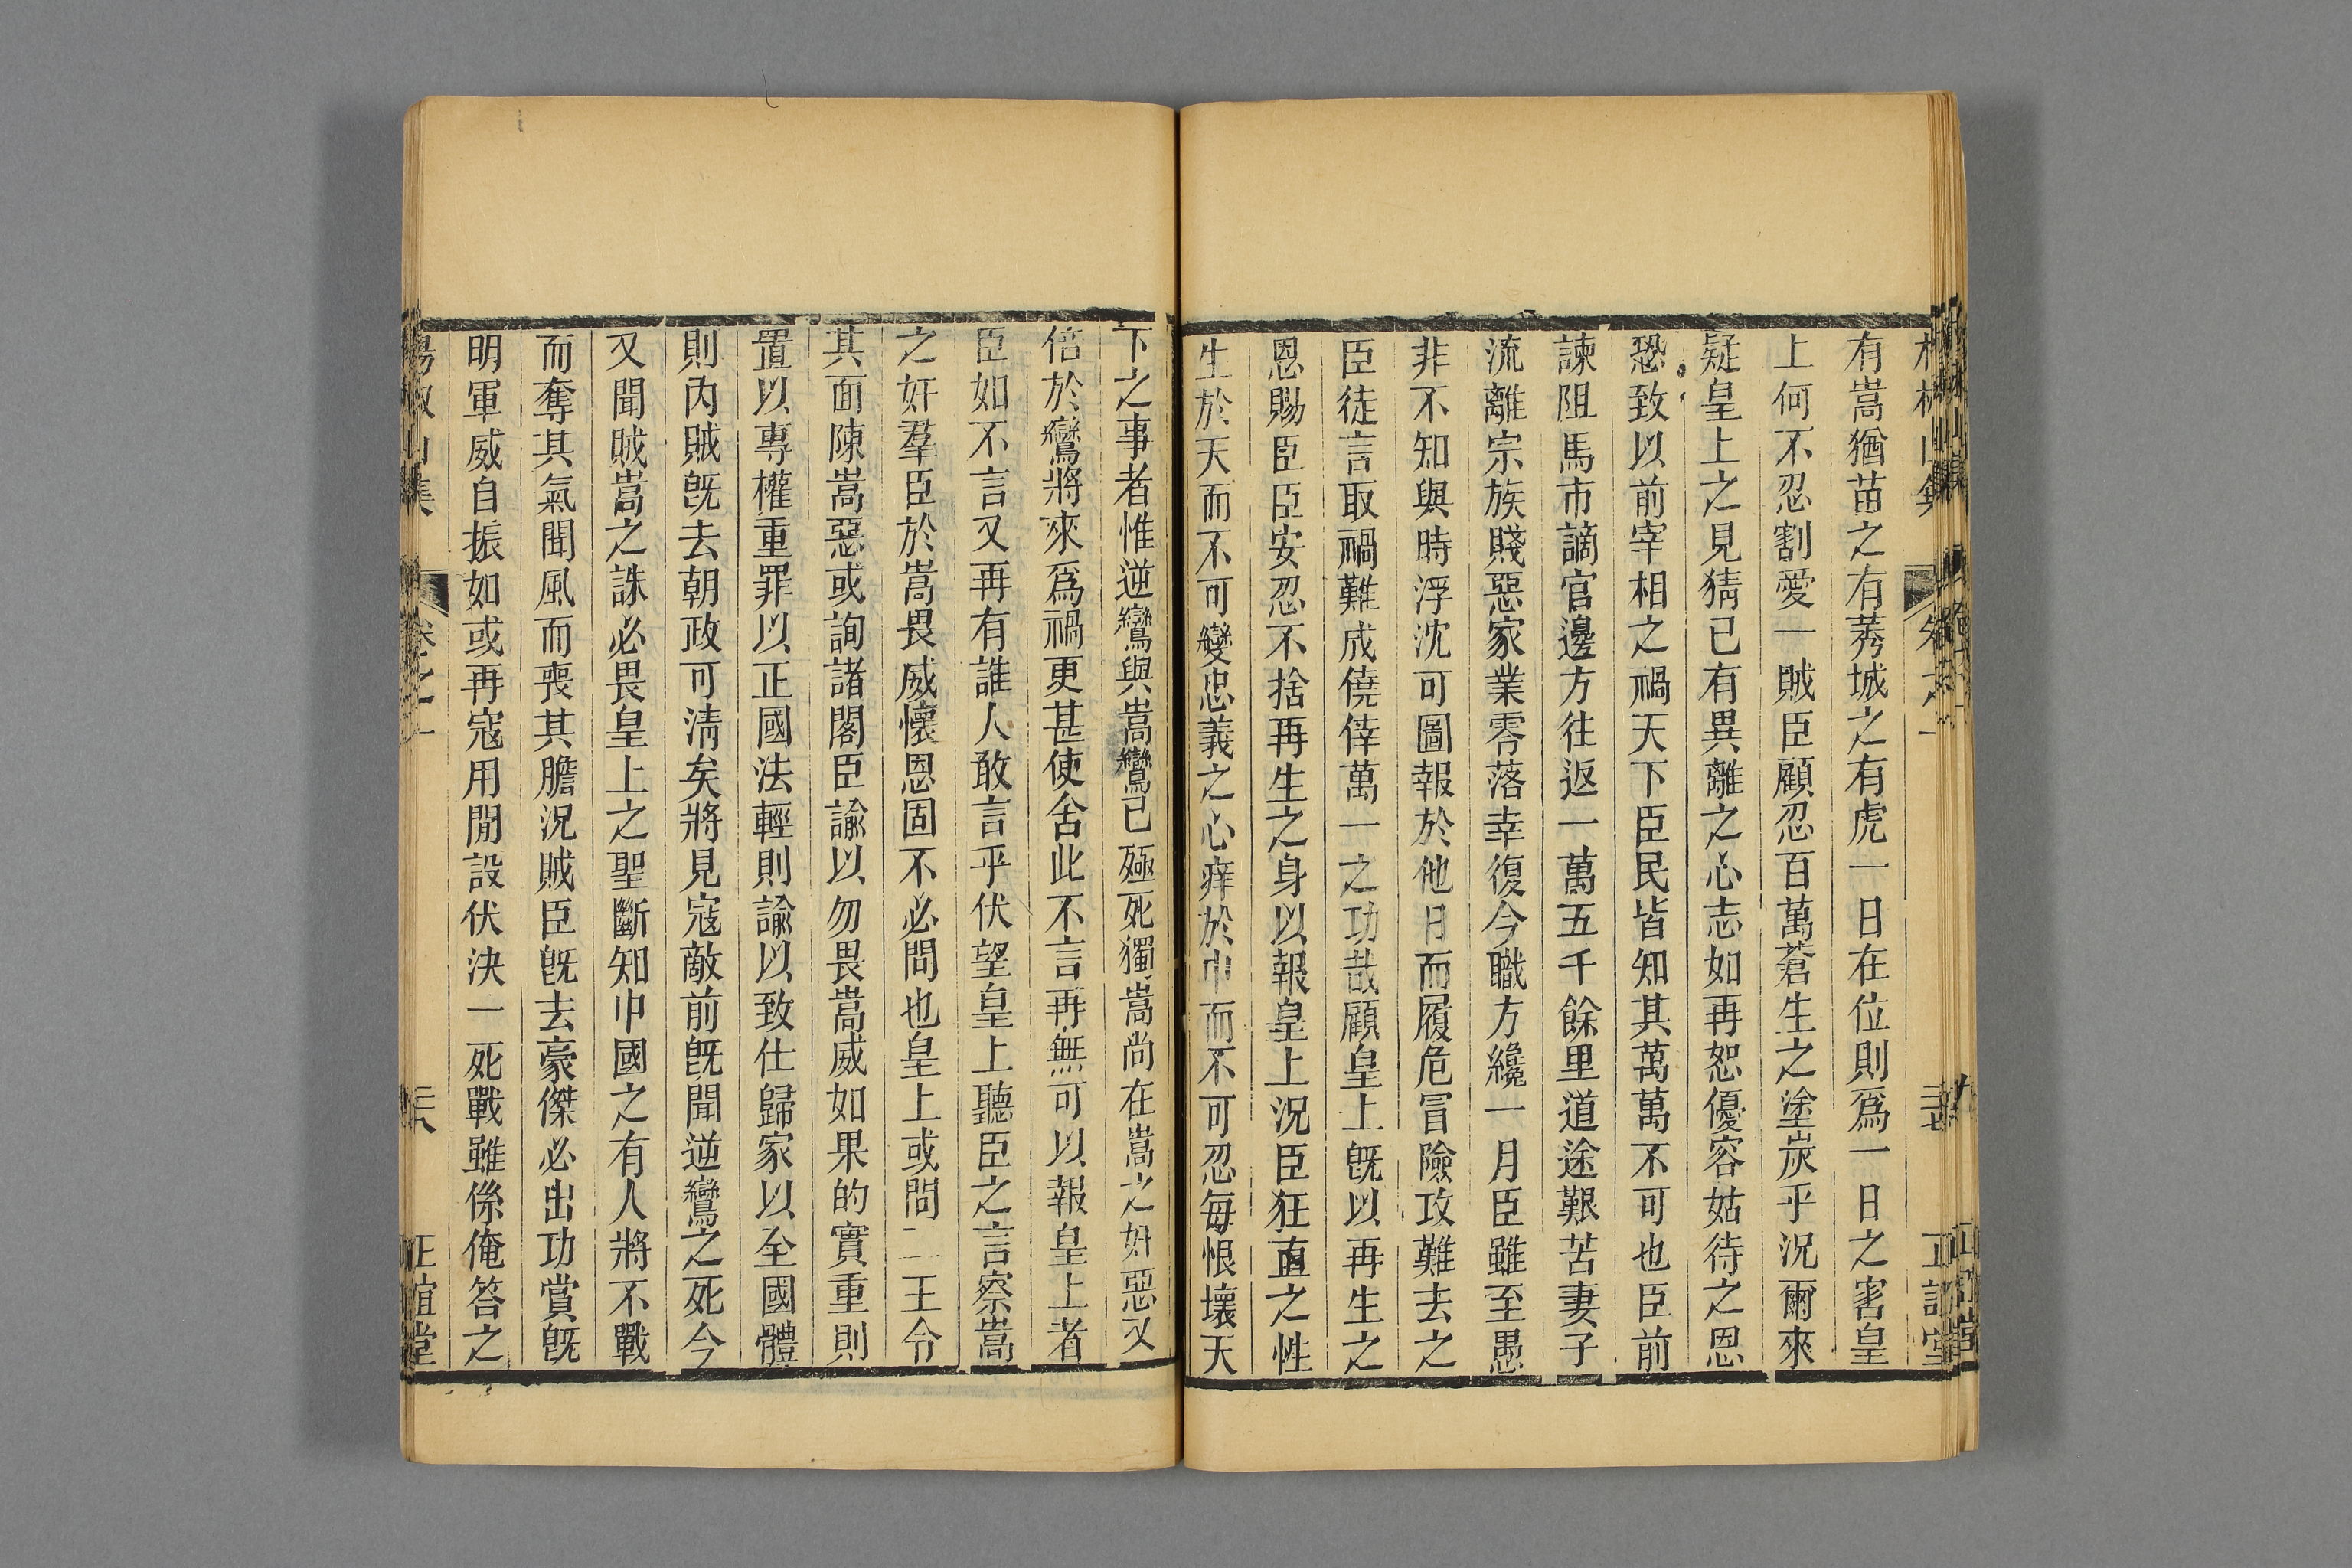 有嵩猶苗之有莠城之有虎一日在位則爲一日之害皇
上何不忍割愛一賊臣顧忍百萬蒼生之塗炭乎況爾來
疑皇上之見猜已有異離之心志如再恕優容姑待之恩
恐致以前宰相之禍天下臣民皆知其萬萬不可也臣前
諫阻馬市謫官邊方往返一萬五千餘里道途艱苦妻子
流離宗族賤惡家業零落幸復今職方纔一月臣雖至愚
非不知與時浮沈可圖報於他日而履危冒險攻難去之
臣徒言取禍難成僥倖萬一之功哉顧皇上旣以再生之
恩賜臣臣安忍不捨再生之身以報皇上況臣狂直之性
生於天而不可變忠義之心癢於中而不可忍每恨壞天
下之事者惟逆鸞與嵩鸞已殛死獨嵩尚在嵩之奸惡又
倍於鸞將來爲禍更甚使舍此不言再無可以報皇上者
臣如不言又再有誰人敢言乎伏望皇上聽臣之言察嵩
之奸羣臣於嵩畏威懷恩固不必問也皇上或問二王令
其面陳嵩惡或詢諸閣臣諭以勿畏嵩威如果的實重則
置以專權重罪以正國法輕則諭以致仕歸家以全國體
則內賊旣去朝政可淸矣將見寇敵前旣聞逆鸞之死今
又聞賊嵩之誅必畏皇上之聖斷知中國之有人將不戰
而奪其氣聞風而喪其膽況賊臣旣去豪傑必出功賞旣
明軍威自振如或再寇用閒設伏決一死戰雖係俺答之
卷之一
三八
正誼堂